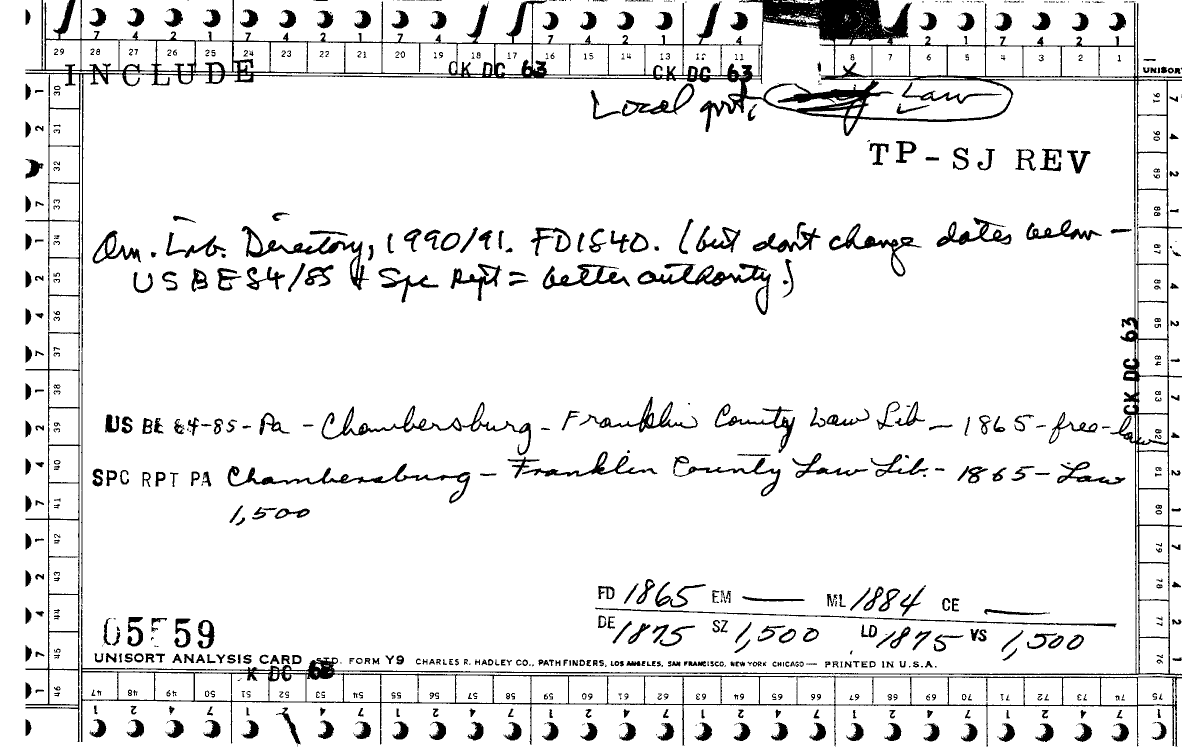 7 4 2 1 7 4 2 1 7 4 2 1 7 4
29 28 27 26 25 24 23 22 21 20 19 18 17 16 15 14 13 12 11 8 7 6 5 4 3 2 1
INCLUDE CK DC 63 CK DC 63 X UNISORT
Local govt, Law
TP-SJ REV
Am. Lib. Directory, 1990/91. FD1840. (but don't change dates below —
US BE 84/85 & Spc Rept = better authority.)
CK DC 63
US BE 84-85-Pa - Chambersburg - Franklin County Law Lib - 1865-free-law
SPC RPT PA Chambersburg - Franklin County Law Lib. - 1865 - Law
1,500
FD 1865 EM — ML 1884 CE —
DE 1875 SZ 1,500 LD 1875 VS 1,500
05559
UNISORT ANALYSIS CARD STD. FORM Y9 CHARLES R. HADLEY CO., PATHFINDERS, LOS ANGELES, SAN FRANCISCO, NEW YORK CHICAGO — PRINTED IN U.S.A.
K DC 63
46 47 48 49 50 51 52 53 54 55 56 57 58 59 60 61 62 63 64 65 66 67 68 69 70 71 72 73 74 75
1 2 4 7 1 2 4 7 1 2 4 7 1 2 4 7 1 2 4 7 1 2 4 7 1 2 4 7 1